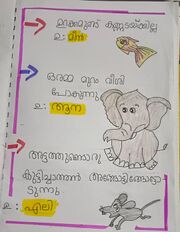 ഉറക്കമുണ്ട് കണ്ണടയ്ക്കില്ല
ഉ : മീൻ
ഒരമ്മ മുറം വീശി
പോകുന്നു
ഉ : ആന
അട്ടത്തുണ്ടൊരു
കുട്ടിച്ചാത്തൻ
ടുന്നു
ഉ : എലി